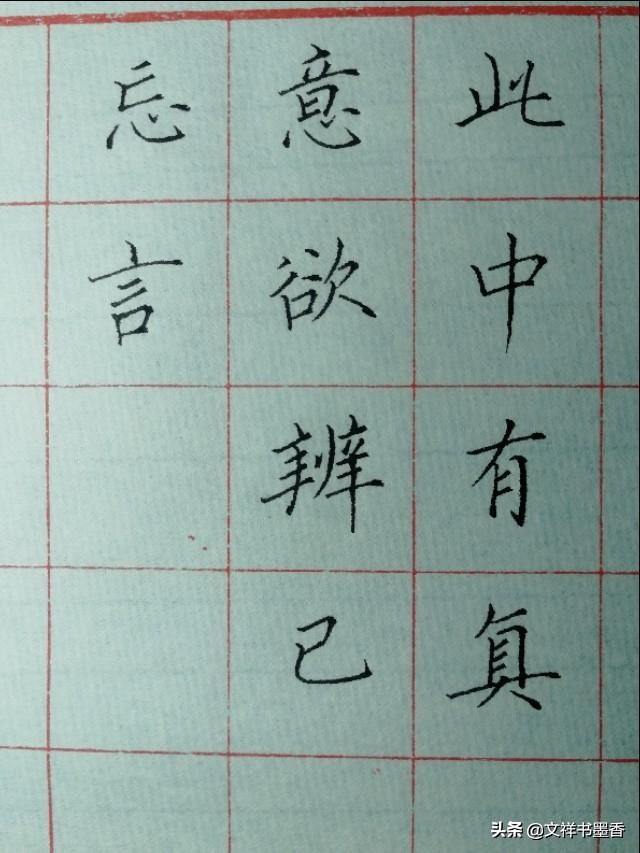 此中有真
意欲辨已
忘言
头条 @文祥书墨香